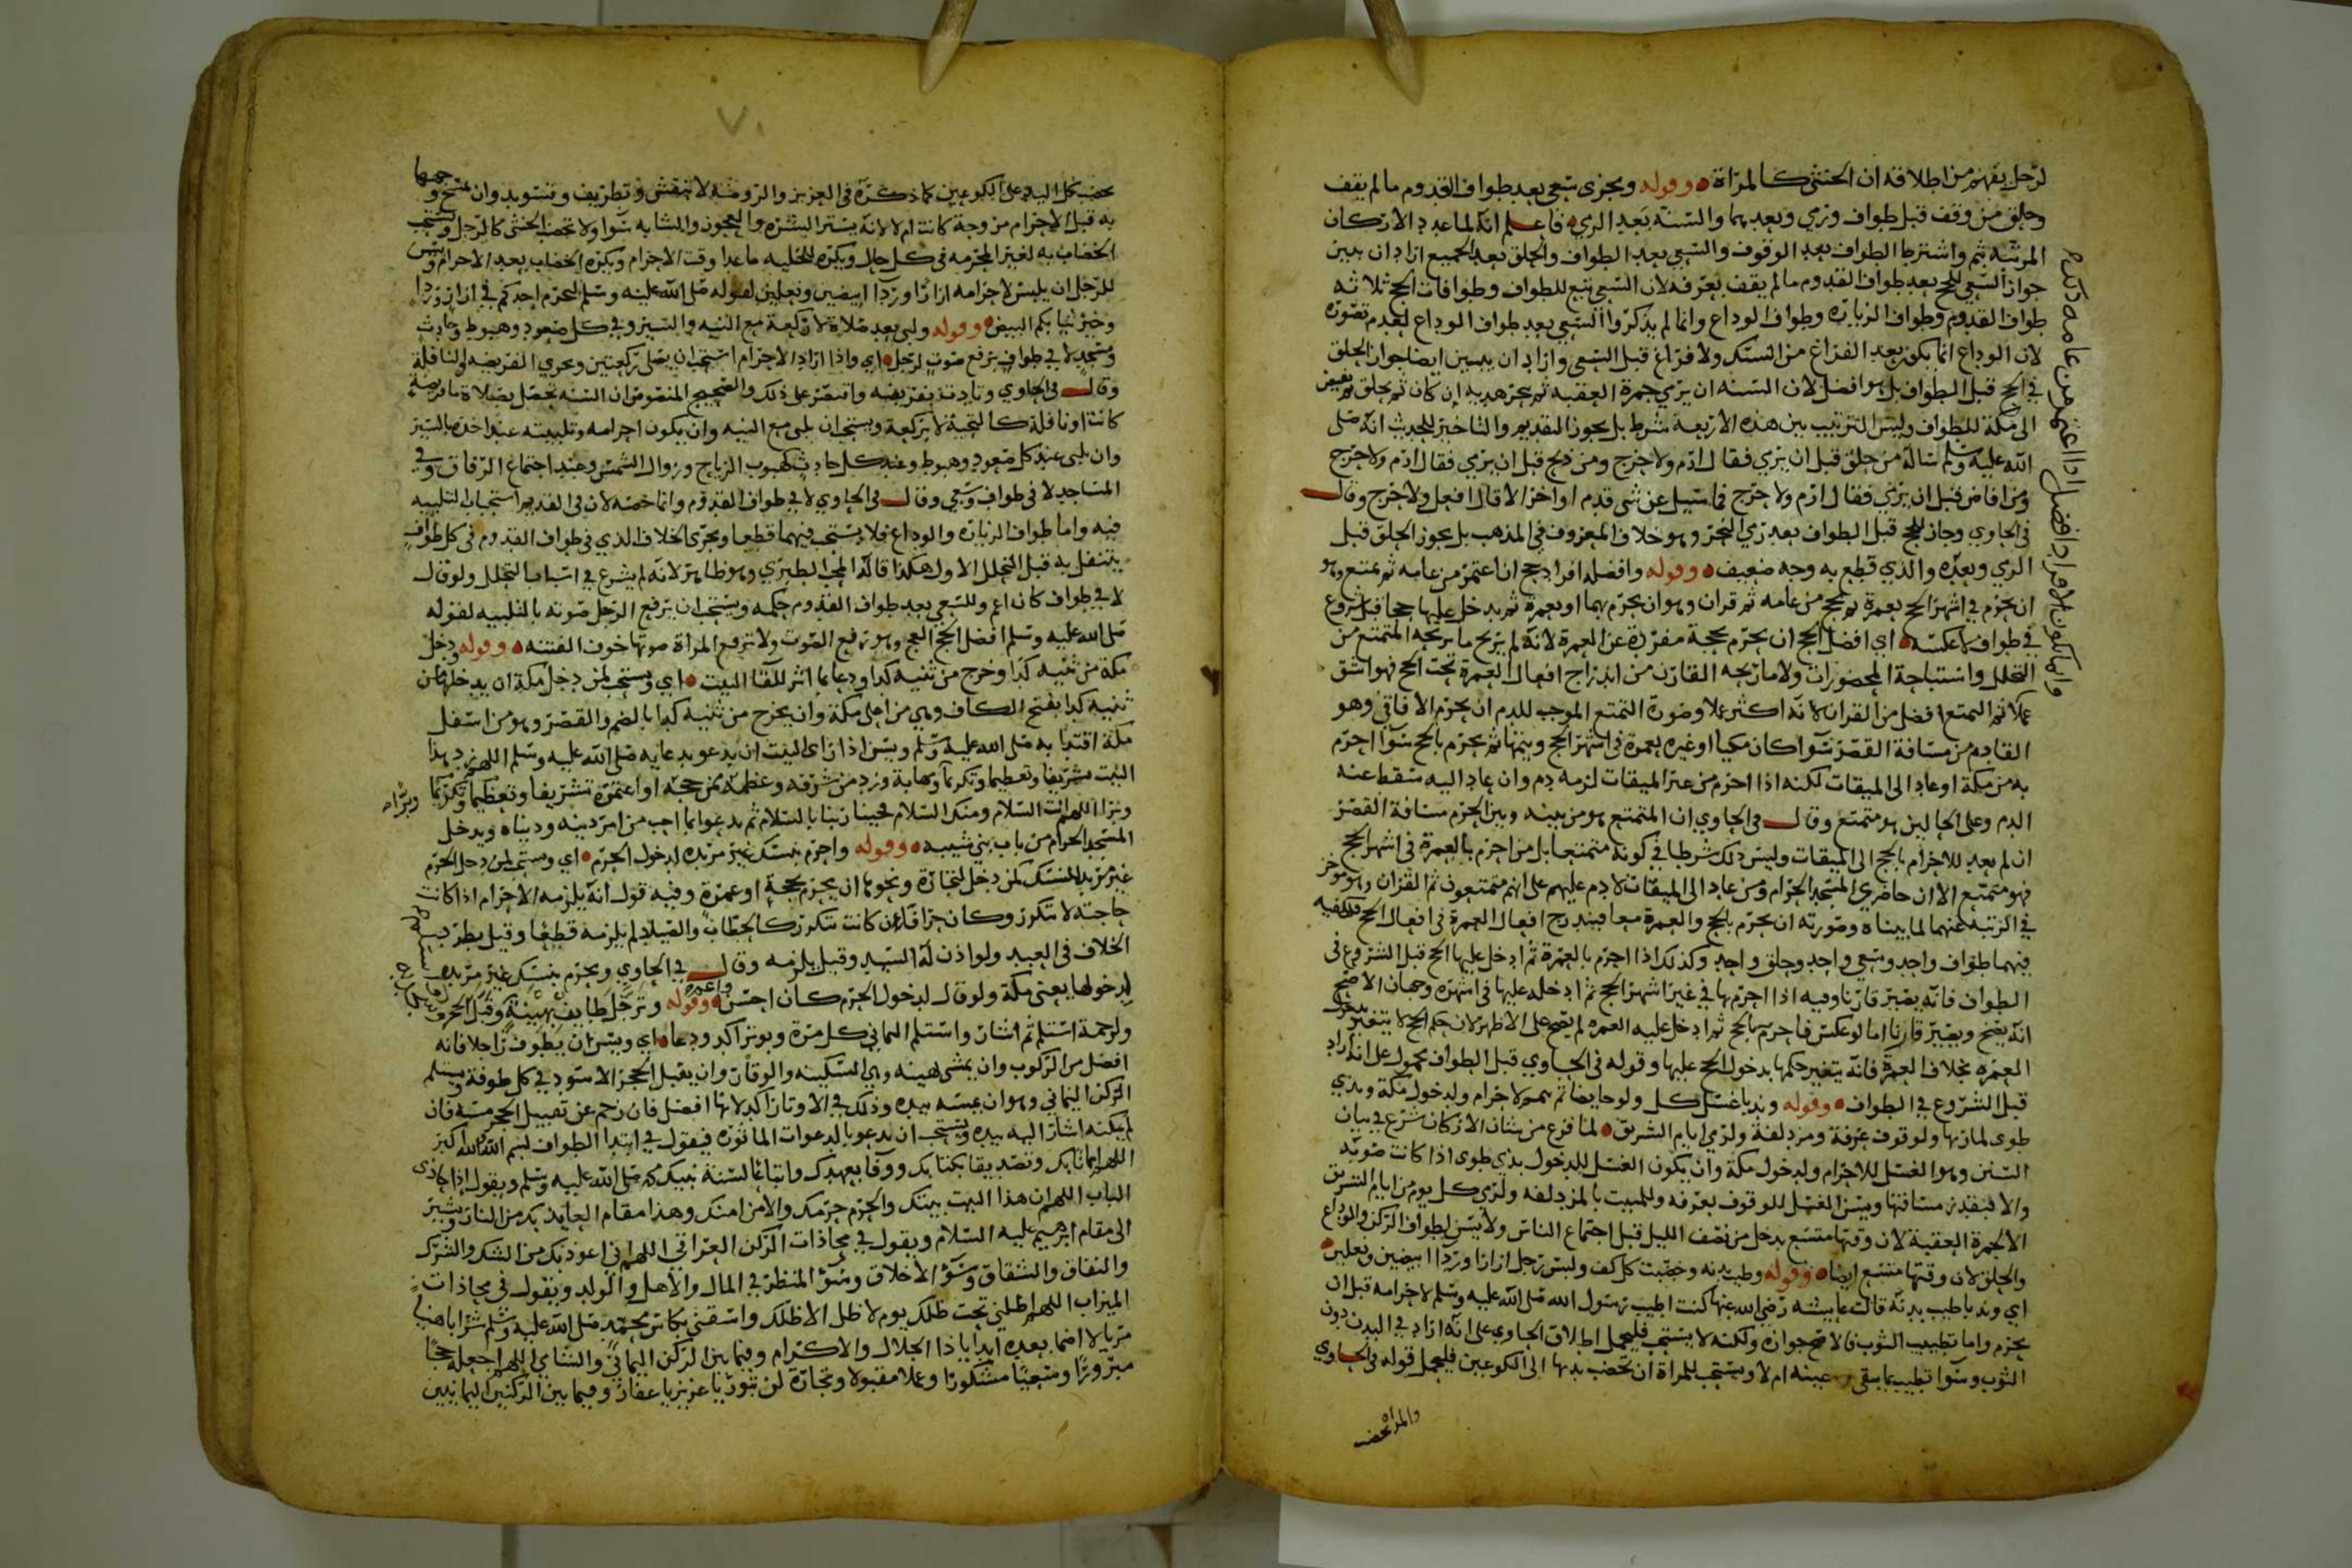 لرجل يفهم من اطلاقه ان الخنثى كالمرأة وقوله ويجزى سعى بعد طواف القدوم ما لم يقف
وحلق من وقف قبل طواف ورمي وبعدهما والسنة بعد الرمي فاعلم انه لما عدد الاركان
المرتبة بثم واشترط الطواف بعد الوقوف والسعي بعد الطواف والحلق بعد الجميع اراد ان يبين
جواز السعي للحج بعد طواف القدوم ما لم يقف بعرفة لان السعي تبع للطواف وطوافات الحج ثلاثه
طواف القدوم وطواف الزيارة وطواف الوداع وانما لم يذكروا السعي بعد طواف الوداع لعدم تصوره
لان الوداع انما يكون بعد الفراغ من النسك ولا فراغ قبل السعى واراد ان يبين ايضا جواز الحلق
في الحج قبل الطواف بل هو افضل لان السنه ان يرمي جمرة العقبه ثم ينحر هديه ان كان ثم يحلق ثم يفيض
الى مكة للطواف وليس الترتيب بين هذه الاربعة شرط بل يجوز التقديم والتاخير للحديث انه صلى
الله عليه وسلم ساله من حلق قبل ان يرمي فقال ارم ولا حرج ومن ذبح قبل ان يرمي فقال ارم ولا حرج
ومن افاض قبل ان يرمي فقال ارم ولا حرج فما سيل عن شي قدم او اخر الا قال افعل ولا حرج وقال
في الحاوي وجاز للحج قبل الطواف بعد رمي النحر وهو خلاف المعروف في المذهب بل يجوز الحلق قبل
الرمي وبعده والذي قطع به وجه ضعيف وقوله وافضله افراد حج ان اعتمر من عامه ثم تمتع وهو
ان يحرم في اشهر الحج بعمرة ثم يحج من عامه ثم قران وهو ان يحرم بهما او بعمرة ثم يدخل عليها حجا قبل شروع
في طواف لا عكسه اي افضل الحج ان يحرم بحجة مفردة عن العمرة لانه لم يربح ما ربحه المتمتع من
التحلل واستباحة المحضورات ولا ما ربحه القارن من اندراج افعال العمرة تحت الحج فهو اشق
عملا ثم التمتع افضل من القران لانه اكثر عملا وصورة التمتع الموجب للدم ان يحرم الافاقي وهو
القادم من مسافة القصر سوا كان مكيا او غيره بعمرة في اشهر الحج ويتمها ثم يحرم بالحج سوا احرم
به من مكة او عاد الى الميقات لكنه اذا احرم من غير الميقات لزمه دم وان عاد اليه سقط عنه
الدم وعلى الحالين هو متمتع وقال في الحاوي ان المتمتع هو من بينه وبين الحرم مسافة القصر
ان لم يعد للاحرام بالحج الى الميقات وليس ذلك شرطا في كونه متمتعا بل من احرم بالعمرة في اشهر الحج
فهو متمتع الا ان حاضري المسجد الحرام ومن عاد الى الميقات لا دم عليهم على انهم متمتعون ثم القران وهو موخر
في الرتبه عنهما لما بيناه وصورته ان يحرم بالحج والعمرة معا فيندرج افعال العمرة في افعال الحج فيكفيه
فيهما طواف واحد وسعي واحد وحلق واحد وكذلك اذا احرم بالعمرة ثم ادخل عليها الحج قبل الشروع في
الطواف فانه يصير قارنا وفيه اذا احرم بها في غير اشهر الحج ثم ادخله عليها في اشهره وجهان الاصح
انه يصح ويصير قارنا اما لو عكس فاحرم بالحج ثم ادخل عليه العمره لم يصح على الاظهر لان حكم الحج لا يتغير بدخول
العمره بخلاف العمرة فانه يتغير حكمها بدخول الحج عليها وقوله في الحاوي قبل الطواف محمول على انه اراد
قبل الشروع في الطواف وقوله وندبا غسل كل ولو حايضا ثم لاحرام ولدخول مكة وبذي
طوى لمار بها ولوقوف عرفة ومزدلفة ولرمي ايام التشريق لما فرغ من بيان الاركان شرع في بيان
السنن وهو الغسل للاحرام ولدخول مكة وان يكون الغسل للدخول بذي طوى اذا كانت صوبه
والا فبقدر مسافتها ويسن الغسل للوقوف بعرفه وللمبيت بالمزدلفه ولرمي كل يوم من ايام التشريق
الا لجمرة العقبة لان وقتها متسع يدخل من نصف الليل قبل اجتماع الناس ولا يسن لطواف الركن والوداع
والحلق لان وقتها متسع ايضا وقوله وطيب بدنه وخضبت كل كف ولبس رجل ازارا وردا ابيضين ونعلين
اي وندبا طيب بدنه قالت عايشه رضي الله عنها كنت اطيب رسول الله صلى الله عليه وسلم لاحرامه قبل ان
يحرم واما تطييب الثوب فالاصح جوازه ولكنه لا يستحب فليحمل اطلاق الحاوي على انه اراد في البدن دون
الثوب وسوا تطيب بما يبقى عينه ام لا ويستحب للمراة ان تخضب يدها الى الكوعين فليحمل قوله في الحاوي
والمراة تخضب
وانما يكون الافراد افضل اذا اعتمر من عامه ذلك
٧٠
تخضب كل اليد على الكوعين كما ذكره في العزيز والروضة لا بنقش وتطريف وتسويد وان تمسح وجهها
به قبل الاحرام مزوجة كانت ام لا لانه يستر البشره والعجوز والشابه سوا ولا تخضب الخنثى كالرجل ويستحب
الخضاب به لغير المحرمه في كل حال ويكره للخليه ما عدا وقت الاحرام ويكره الخضاب بعد الاحرام وليس
للرجل ان يلبس لاحرامه ازارا وردا ابيضين ونعلين لقوله صلى الله عليه وسلم ليحرم احدكم في ازار وردا
وخير ثيابكم البيض وقوله ولبى بعد صلاة لا ركعة مع النيه والسير وفي كل صعود وهبوط وحادث
ومسجد لا في طواف يرفع صوت لرجل اي واذا اراد الاحرام استحب ان يصلى ركعتين وتجزي الفريضه والنافلة
وقال في الحاوي وتادت بفريضه واقتصر على ذلك والصحيح المنصوص ان السنة تحصل بصلاة ما فريضة
كانت او نافلة كالتحية لا بركعة ويستحب ان يلبى مع النيه وان يكون احرامه وتلبيته عند اخذه بالسير
وان يلبى عند كل صعود وهبوط وعند كل حادث كهبوب الرياح وزوال الشمس وعند اجتماع الرفاق وفي
المساجد لا في طواف وسعي وقال في الحاوي لا في طواف القدوم وانما خصه لان في القديم استحباب التلبيه
فيه واما طواف الزيارة والوداع فلا يستحب فيهما قطعا ويجرى الخلاف الذي في طواف القدوم في كل طواف
يتنفل به قبل التحلل الاول هكذا قاله المحب الطبري وهو ظاهر لانه لم يشرع في اسباب التحلل ولو قال
لا في طواف كان اعم وللسعي بعد طواف القدوم حكمه ويستحب ان يرفع الرجل صوته بالتلبيه لقوله
صلى الله عليه وسلم افضل الحج العج وهو رفع الصوت ولا ترفع المراة صوتها خوف الفتنه وقوله ودخل
مكة من ثنيه كدا وخرج من ثنيه كدا ودعا بما اثر للقا البيت اي ويستحب لمن دخل مكة ان يدخلها من
ثنيه كدا بفتح الكاف وهي من اعلى مكة وان يخرج من ثنية كدا بالضم والقصر وهو من اسفل
مكة اقتدا به صلى الله عليه وسلم ويسن اذا راى البيت ان يدعو بدعايه صلى الله عليه وسلم اللهم زد هذا
البيت تشريفا وتعظيما وتكريما ومهابة وزد من شرفه وعظمه ممن حجه او اعتمره تشريفا وتعظيما وتكريما
وبرا اللهم انت السلام ومنك السلام فحينا ربنا بالسلام ثم يدعو بما احب من امر دينه ودنياه ويدخل
المسجد الحرام من باب بني شيبه وقوله واحرم بنسك غير مريده لدخول الحرم اي ويستحب لمن دخل الحرم
غير مريد لنسك كمن دخل لتجارة ونحوها ان يحرم بحجة او عمرة وفيه قول انه يلزمه الاحرام اذا كانت
حاجته لا تتكرر وكان حرا فان كانت تتكرر كالحطاب والصياد لم يلزمه قطعا وقيل يطرد
الخلاف في العبد ولو اذن له السيد وقيل يلزمه وقال في الحاوي ويحرم بنسك غير مريده
لدخولها يعني مكة ولو قال لدخول الحرم كان احسن وقوله وترجل طايف بهينة وقبل الحجر
ولزحمة استلم ثم اشار واستلم اليماني كل مرة وبوتر اكد ودعا اي ويسن ان يطوف راجلا فانه
افضل من الركوب وان يمشى بهينه وهي السكينه والوقار وان يقبل الحجر الاسود في كل طوفة ويستلم
الركن اليماني وهو ان يمسه بيده وذلك في الاوتار اكد لانها افضل فان زحم عن تقبيل الحجر مسه فان
لم يمكنه اشار اليه بيده ويستحب ان يدعو بالدعوات الماثوره فيقول في ابتدا الطواف بسم الله والله اكبر
اللهم ايمانا بك وتصديقا بكتابك ووفا بعهدك واتباعا لسنة نبيك محمد صلى الله عليه وسلم ويقول اذا حاذى
الباب اللهم ان هذا البيت بيتك والحرم حرمك والامن امنك وهذا مقام العايذ بك من النار ويشير
الى مقام ابرهيم عليه السلام ويقول في محاذات الركن العراقي اللهم اني اعوذ بك من الشك والشرك
والنفاق والشقاق وسوء الاخلاق وسوء المنظر في المال والاهل والولد ويقول في محاذات
الميزاب اللهم اظلني تحت ظلك يوم لا ظل الا ظلك واسقني بكاس محمد صلى الله عليه وسلم شرابا هنيا
مريا لا اضما بعده ابدا يا ذا الجلال والاكرام وفيما بين الركن اليماني والشامي اللهم اجعله حجا
مبرورا وسعيا مشكورا وعملا مقبولا وتجارة لن تبور يا عزيز يا غفار وفيما بين الركنين اليمانيين